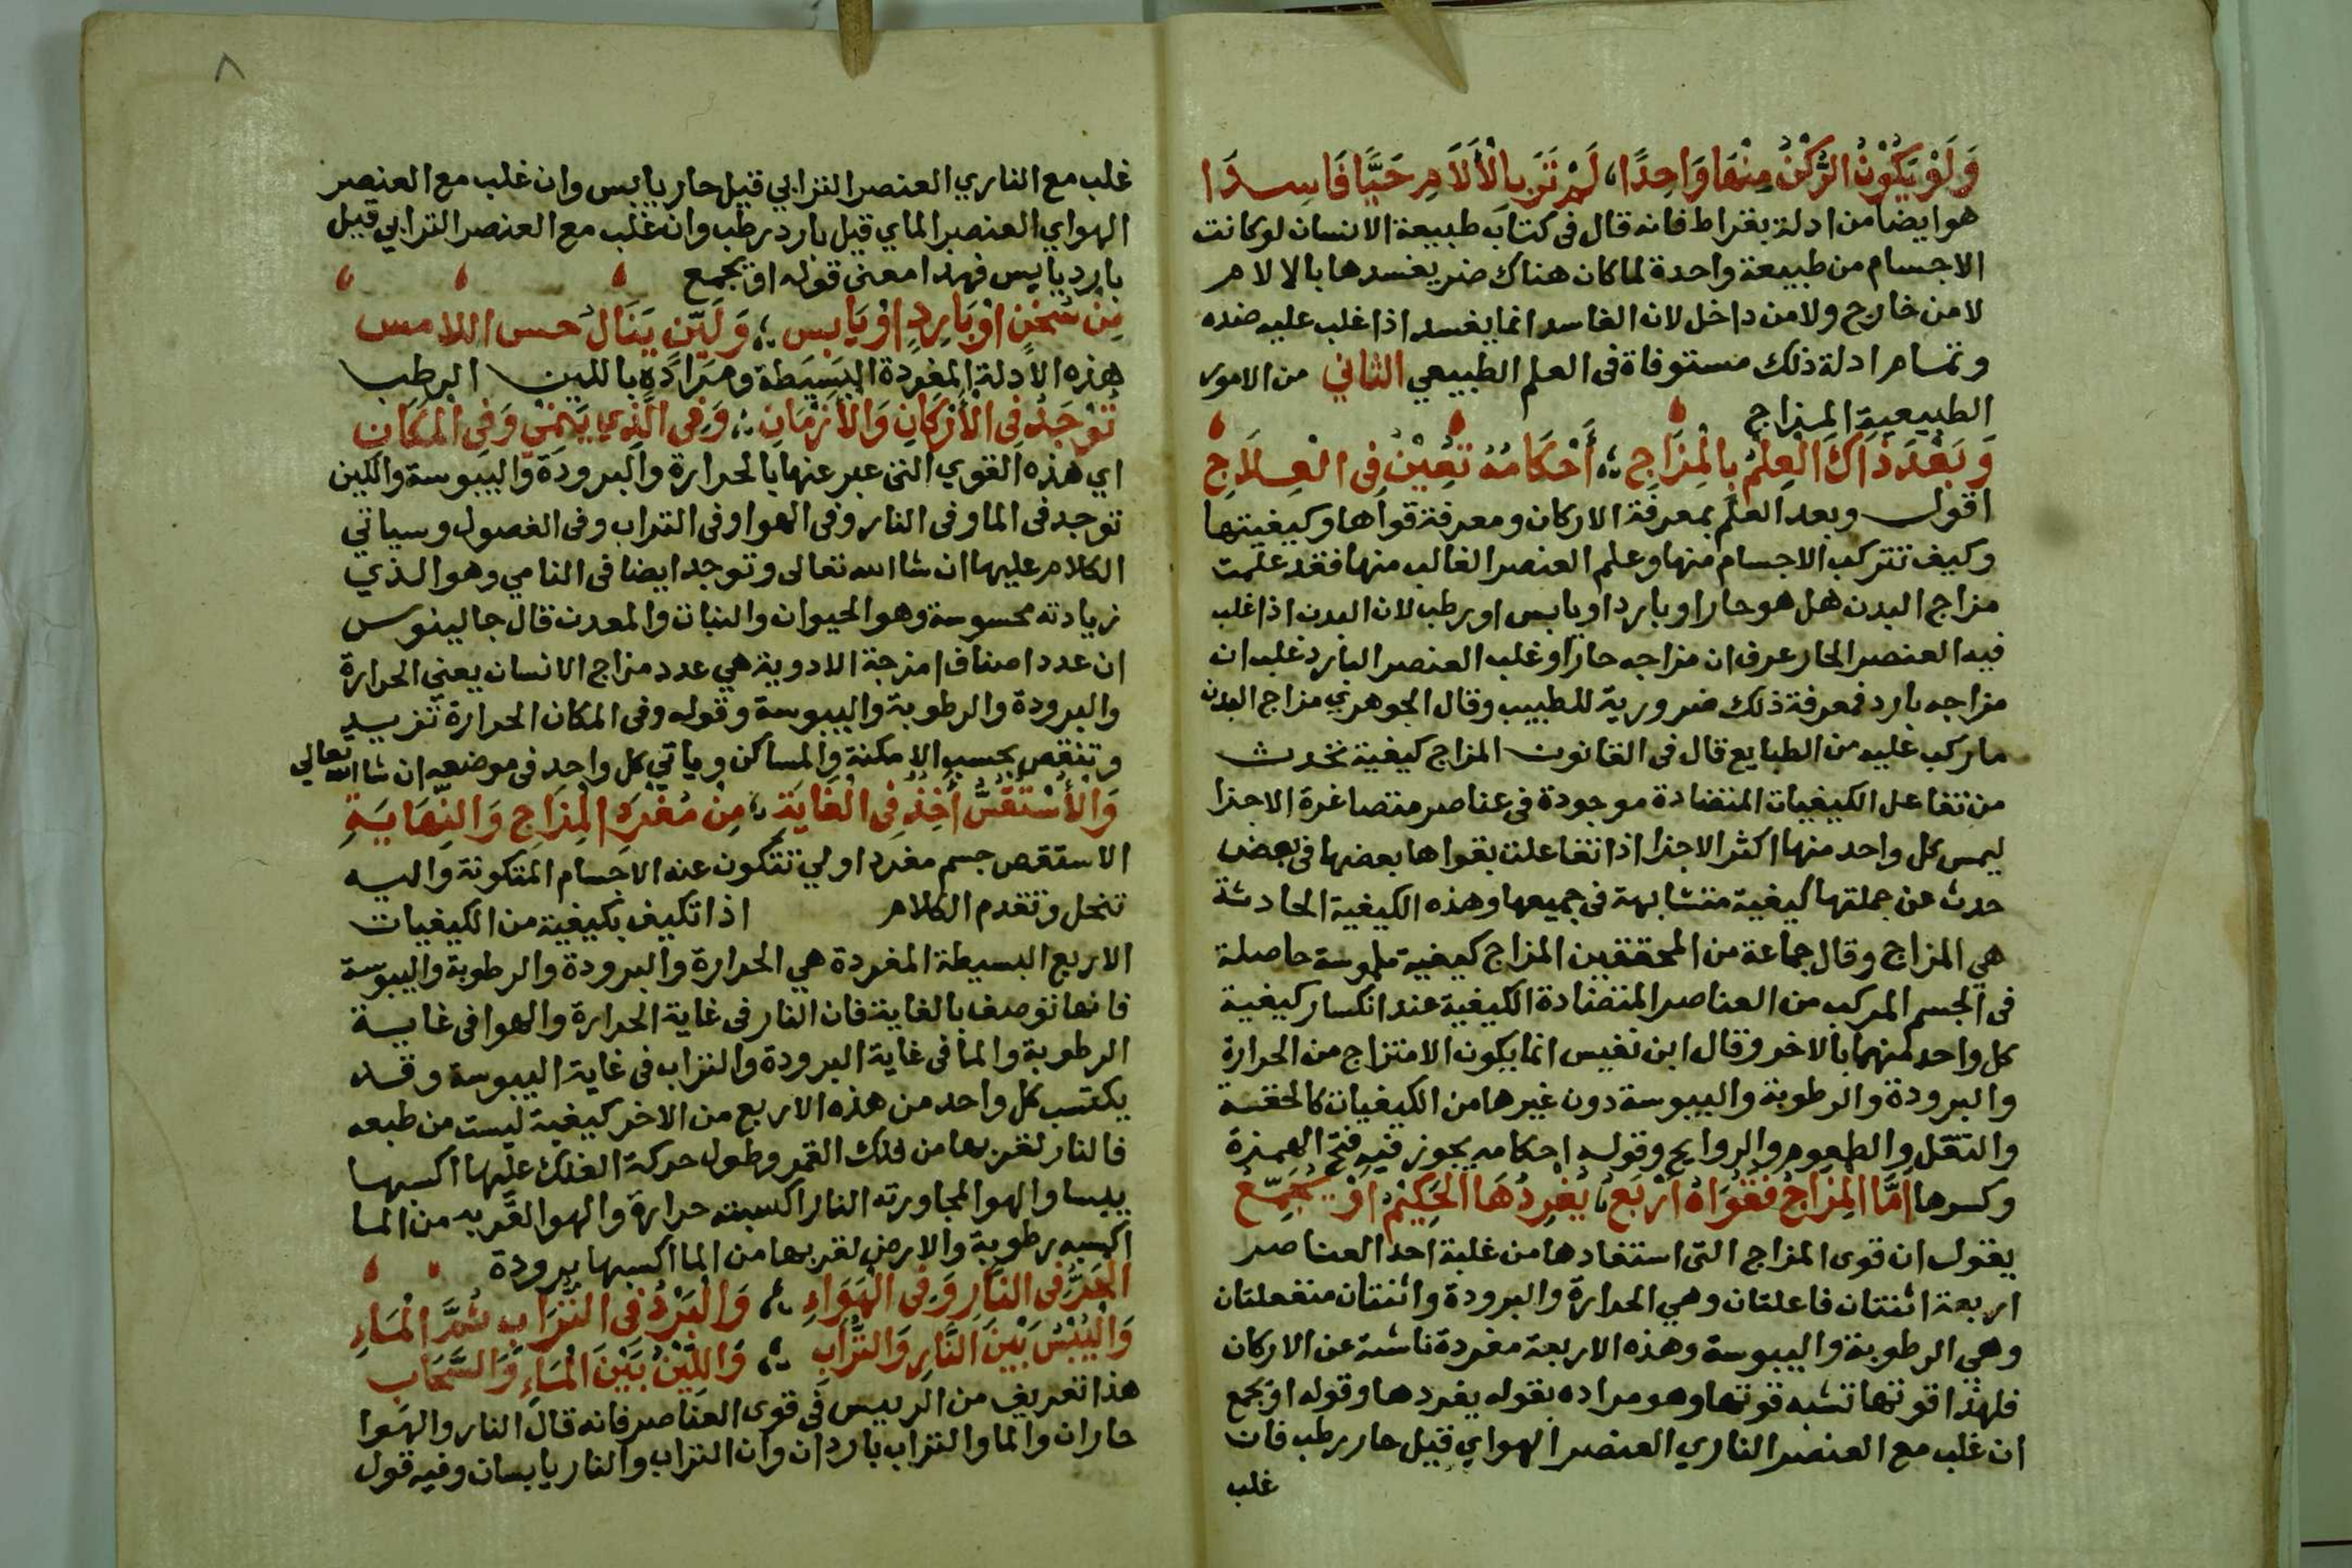 وَلَوْ يَكُوْنُ الرُّكْنُ مِنْهَا وَاحِدًا، لَمْ تَرَ بِالْأَلَامِ حَيًّا فَاسِدَا
هو ايضا من ادلة بقراط فانه قال فى كتابه طبيعة الانسان لو كانت
الاجسام من طبيعة واحدة لما كان هناك ضر يفسدها بالالام
لا من خارج ولا من داخل لان الفاسد انما يفسد اذا غلب عليه ضده
وتمام ادلة ذلك مستوفاة فى العلم الطبيعي الثاني من الامور
الطبيعية المزاج
وَبَعْدَ ذَاكَ الْعِلْمُ بِالْمِزَاجِ ؛ أَحْكَامُهُ تُعِيْنُ فِى الْعِلَاجِ
اقول وبعد العلم بمعرفة الاركان ومعرفة قواها وكيفيتها
وكيف تتركب الاجسام منها وعلم العنصر الغالب منها فقد علمت
مزاج البدن هل هو حار او بارد او يابس او رطب لان البدن اذا غلب
فيه العنصر الحار عرف ان مزاجه حار او غلب العنصر البارد غلب ان
مزاجه بارد فمعرفة ذلك ضرورية للطبيب وقال الجوهري مزاج البدن
ما ركب عليه من الطبايع قال فى القانون المزاج كيفية تحدث
من تفاعل الكيفيات المتضادة موجودة فى عناصر متصاغرة الاجزا
ليمس كل واحد منها اكثر الاجزا اذا تفاعلت بقواها بعضها فى بعض
حدث عن جملتها كيفية متشابهة فى جميعها وهذه الكيفية الحادثة
هي المزاج وقال جماعة من المحققين المزاج كيفية ملموسة حاصلة
فى الجسم المركب من العناصر المتضادة الكيفية عند انكسار كيفية
كل واحد منهما بالاخر وقال ابن نفيس انما يكون الامتزاج من الحرارة
والبرودة والرطوبة واليبوسة دون غيرها من الكيفيات كالخفة
والثقل والطعوم والروايح وقوله احكامه يجوز فيه فتح الهمزة
وكسرها اَمَّا الْمِزَاجُ فَقُوَاهُ اَرْبَعُ، يُفْرِدُهَا الْحَكِيْمُ اَوْ يُجَمِّعُ
يقول ان قوى المزاج التى استفادها من غلبة احد العناصر
اربعة اثنتان فاعلتان وهي الحرارة والبرودة واثنتان منفعلتان
وهي الرطوبة واليبوسة وهذه الاربعة مفردة ناشئة عن الاركان
فلهذا قوتها تشبه قوتها وهو مراده بقوله يفردها وقوله او يجمع
ان غلب مع العنصر الناري العنصر الهواي قيل حار رطب فان
غلب
٨
غلب مع الناري العنصر الترابي قيل حار يابس وان غلب مع العنصر
الهواي العنصر الماي قيل بارد رطب وان غلب مع العنصر الترابي قيل
بارد يابس فهذا معنى قوله او يجمع
مِنْ سُخْنٍ اوْ بَارِدٍ اوْ يَابِسٍ ؛ وَلَيِّنٍ يَنَالُ حس اللامس
هذه الادلة المفردة البسيطة ومراده باللين الرطب
تُوْجَدُ فِى الْأَرْكَانِ وَالْأَزْمَانِ ؛ وَفِى الَّذِي يَنْمِيْ وَفِى الْمَكَانِ
اي هذه القوي التى عبر عنها بالحرارة والبرودة واليبوسة واللين
توجد فى الما وفى النار وفى الهوا وفى التراب وفى الفصول وسياتي
الكلام عليها ان شا الله تعالى وتوجد ايضا فى النامي وهو الذي
زيادته محسوسة وهو الحيوان والنبات والمعدن قال جالينوس
ان عدد اصناف امزجة الادوية هي عدد مزاج الانسان يعني الحرارة
والبرودة والرطوبة واليبوسة وقوله وفى المكان الحرارة تزيد
وتنقص بحسب الامكنة والمساكن وياتي كل واحد فى موضعه ان شا الله تعالي
وَالْأُسْتُقُسُّ أُخِذُ فِى الْغَايَة ؛ مِنْ مُفْرَدِ الْمِزَاجِ وَالنِّهَايَةِ
الاستقص جسم مفرد اولي تتكون عنه الاجسام المتكونة واليه
تنحل وتقدم الكلام اذا تكيف بكيفية من الكيفيات
الاربع البسيطة المفردة هي الحرارة والبرودة والرطوبة واليبوسة
فانها توصف بالغاية فان النار فى غاية الحرارة والهوا فى غاية
الرطوبة والما فى غاية البرودة والتراب فى غاية اليبوسة وقد
يكتسب كل واحد من هذه الاربع من الاخر كيفية ليست من طبعه
فالنار لقربها من فلك القمر وطول حركة الفلك عليها اكسبها
يبسا والهوا لمجاورته النار اكسبته حرارة والهوا لقربه من الما
اكسبه رطوبة والارض لقربها من الما اكسبها برودة
الْحَرُّ فِى النَّارِ وَفِى الْهَوَاءِ ؛ وَالْبَرْدُ فِى التُّرَابِ ثُمَّ الْمَاءِ
وَالْيُبْسُ بَيْنَ النَّارِ وَالتُّرَابِ ؛ وَاللِّيْنُ بَيْنَ الْمَاءِ وَالسَّحَابِ
هذا تعريف من الرييس فى قوى العناصر فانه قال النار والهوا
حاران والما والتراب باردان وان التراب والنار يابسان وفيه قول